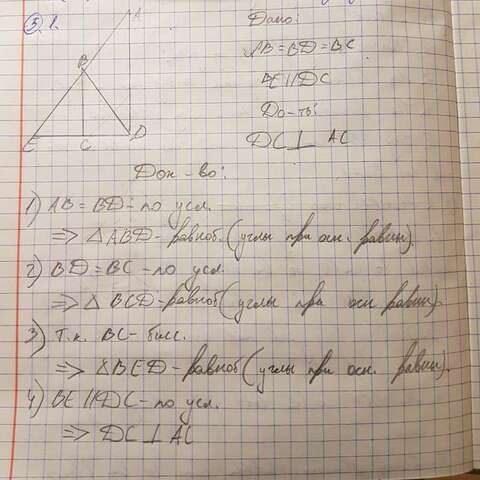 5. 1.
A
B
E C D
Дано:
AB = BD = BC
BE || DC
До-ть:
DC ⊥ AC
Док-во:
1) AB = BD - по усл.
=> △ ABD - равноб. (углы при осн. равны).
2) BD = BC - по усл.
=> △ BCD - равноб (углы при осн равны)
3) Т.к. BC - бисс.
=> △ BED - равноб (углы при осн. равны).
4) BE || DC - по усл.
=> DC ⊥ AC